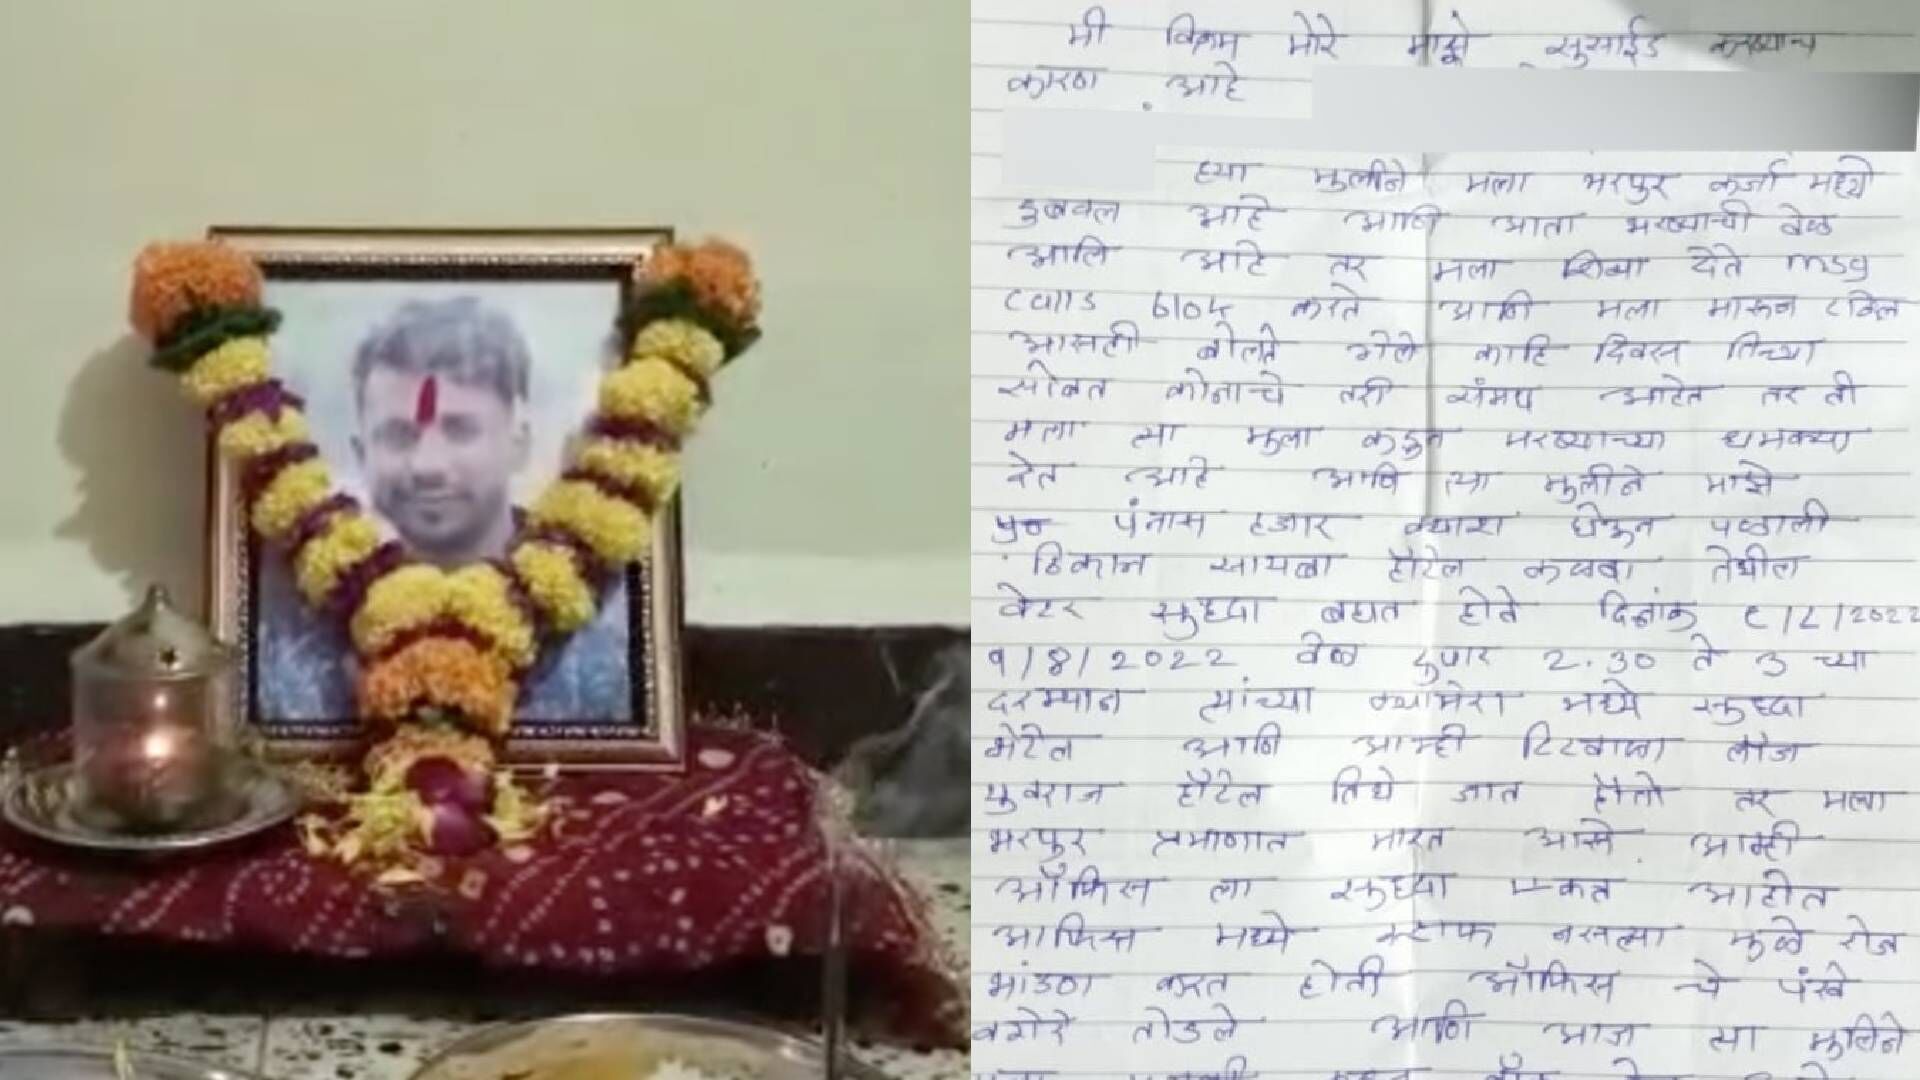 मी विक्रम मोरे माझे सुसाईड करण्याच
कारण आहे
ह्या मुलीने मला भरपुर कर्जा मध्ये
डुबवल आहे आणि आता मरण्याची वेळ
आलि आहे तर मला शिव्या देते msg
calls blok करते आणि मला मारून टाकिल
आसती बोलते गेले काहि दिवस तिच्या
सोबत कोनाचे तरी संमध आहेत तर ती
मला त्या मुला कडुन मरण्याच्या धमक्या
देत आहे आणि त्या मुलीने माझे
पंनास हजार क्याश घेऊन पळाली
ठिकान सायबा हॉटेल कळवा तेथील
वेटर सुध्दा बघत होते दिनांक ९/८/२०२२
९/8/2022 वेळ दुपार 2.30 ते 3 च्या
दरम्यान त्यांच्या क्यामेरा मध्ये सुध्दा
भेटेल आणि आम्ही टिटवाळा लॉज
युवराज हॉटेल तिथे जात होतो तर मला
भरपुर प्रमाणात मारत आसे आम्ही
ऑफिस ला सुध्दा एकत्र आहोत
आफिस मध्ये स्टाफ नसल्या मुळे रोज
भांडण करत होती ऑफिस चे पंखे
वगेरे तोडले आणि आज त्या मुलिने